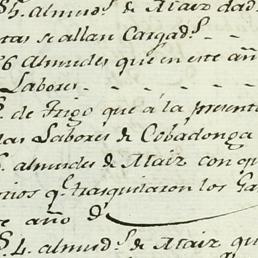 5. almud.s de Maiz dad
tas se allan Cargad.s
6 Almudes que en este añ
Labores
de Trigo que á la present
las Labores de Cobadonga
almudes de Maiz con que
q.e trasquilaron los Ga
te año d
S. 4. almud.s de Maiz qu